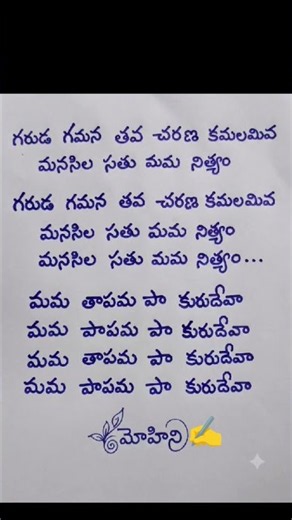 గరుడ గమన తవ చరణ కమలమివ
మనసిల సతు మమ నిత్యం
గరుడ గమన తవ చరణ కమలమివ
మనసిల సతు మమ నిత్యం
మనసిల సతు మమ నిత్యం...
మమ తాపమ పా కురుదేవా
మమ పాపమ పా కురుదేవా
మమ తాపమ పా కురుదేవా
మమ పాపమ పా కురుదేవా
మోహిని